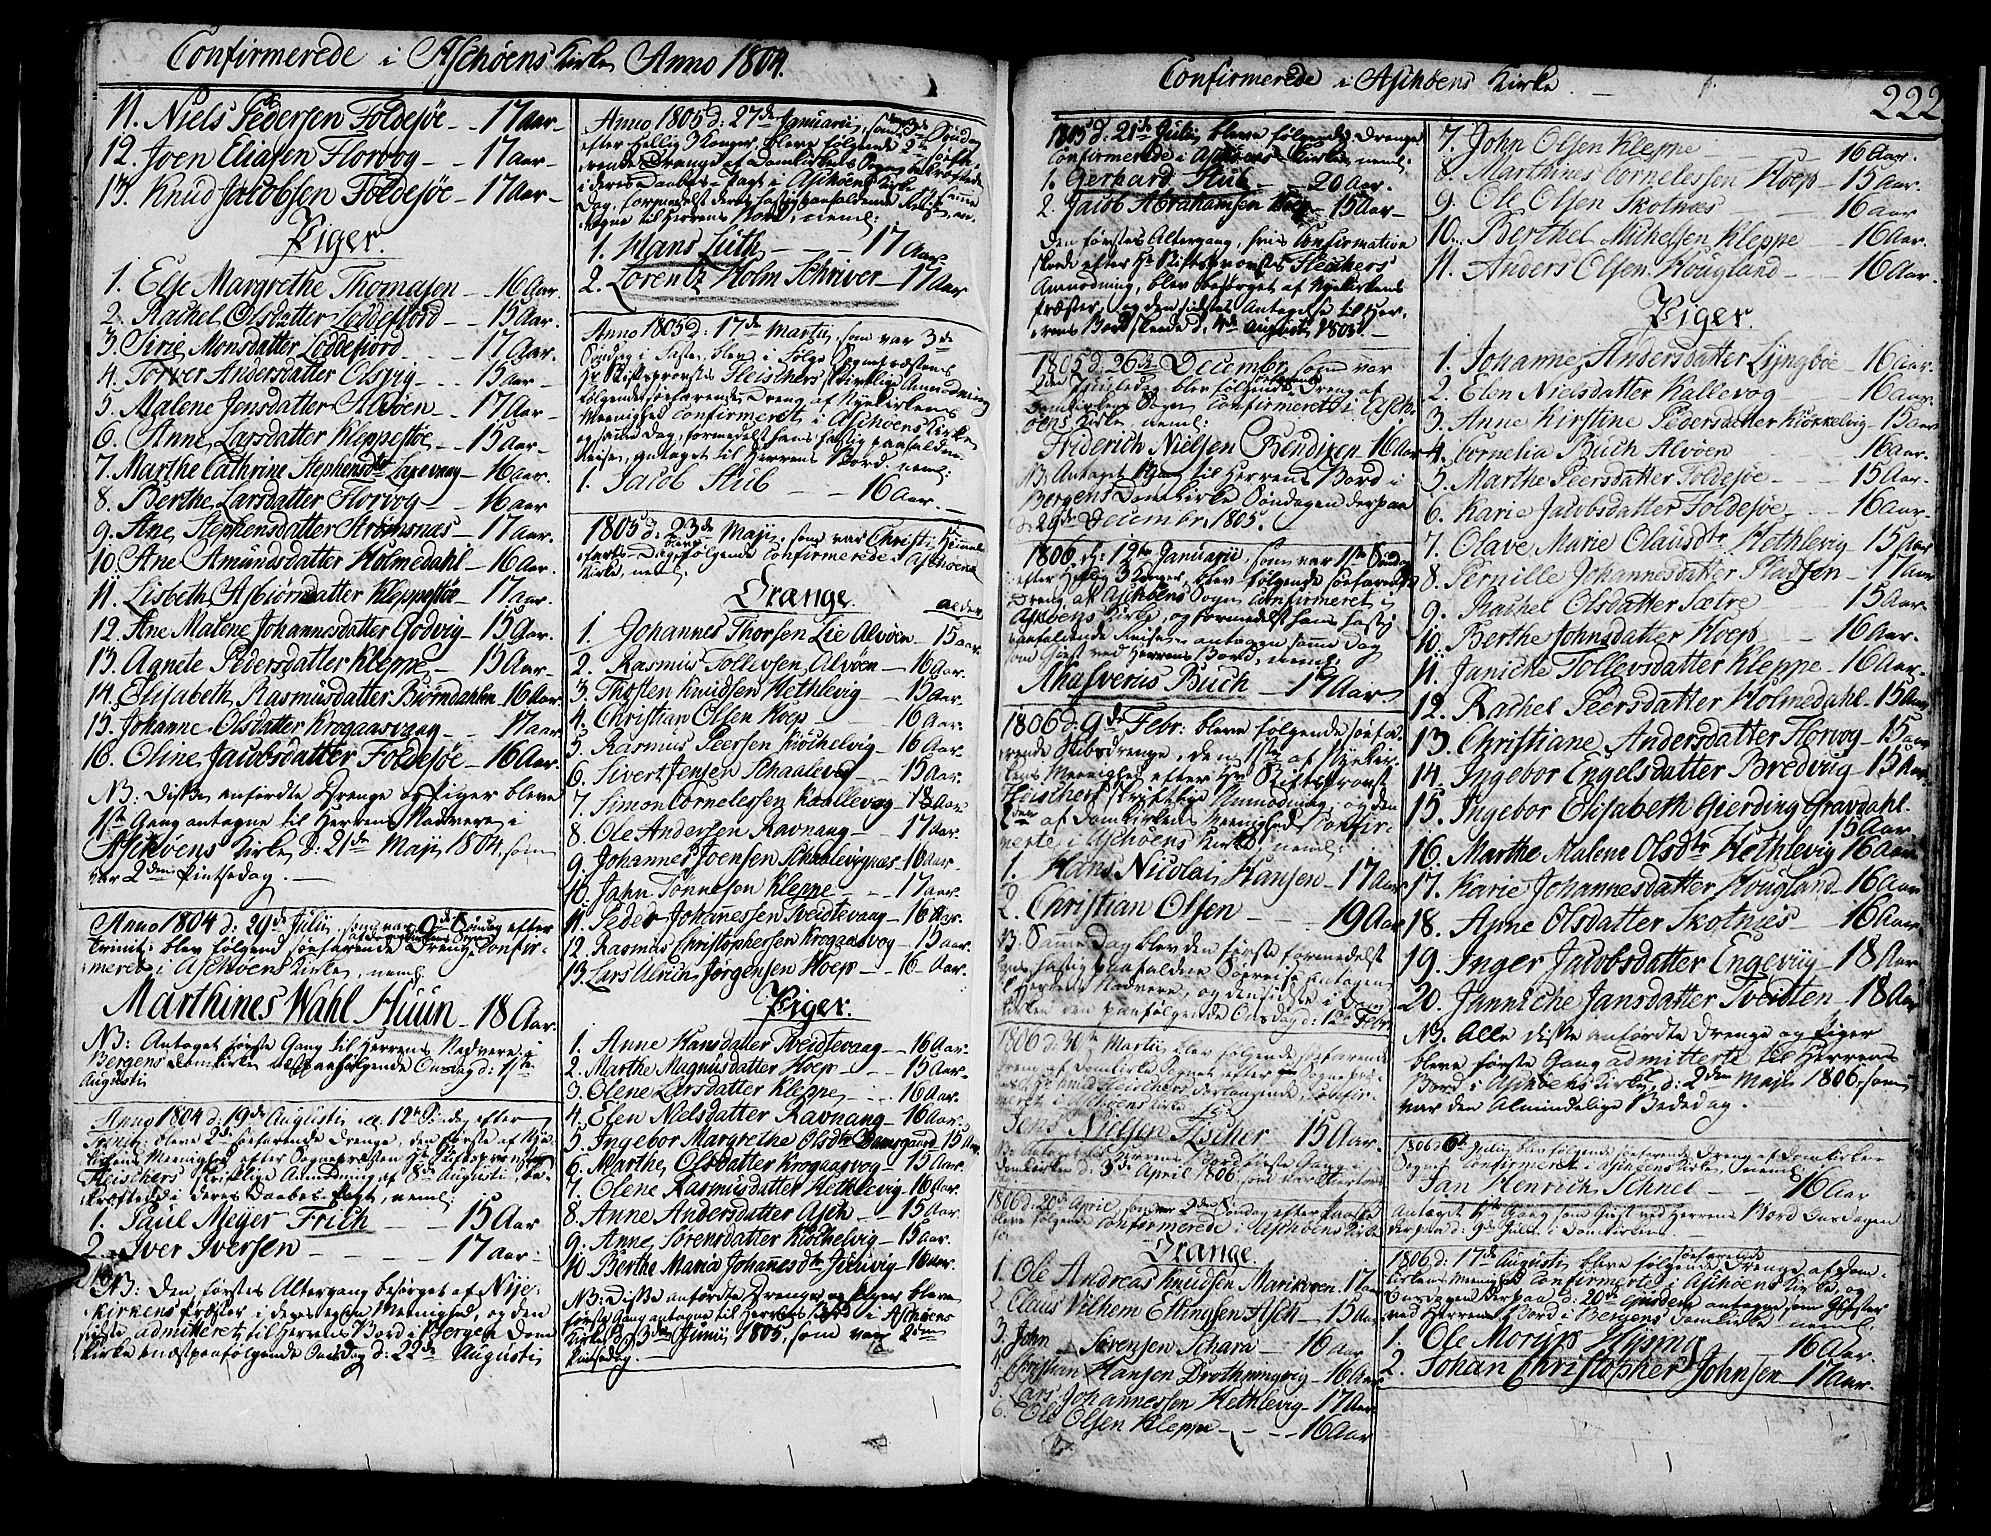 Confirmerede i Aschøens Kirke Anno 1804.
11. Niels Pedersen Foldesøe - 17 Aar -
12. Joen Eliasen Florvog - 17 Aar -
13. Knud Jacobsen Foldesøe - 17 Aar -
Piger.
1. Else Margrethe Thomasen - 16 Aar.
2. Rachel Olsdatter Loddefiord - 15 Aar.
3. Sirie Monsdatter Loddefiord - 17 Aar.
4. Torver Andersdatter Olsvig - 15 Aar -
5. Malene Jonsdatter Alvøen - 17 Aar -
6. Anne Larsdatter Kleppestøe - 15 Aar.
7. Marthe Cathrine Stephensdtr - 16 Aar.
8. Berthe Larsdatter Florvog - 16 Aar
9. Ane Stephensdatter Strømsnæs - 17 Aar.
10. Ane Amundsdatter Holmedahl - 16 Aar.
11. Lisbeth Asbiørnsdatter Kleppestøe - 17 Aar.
12. Ane Malene Johannesdatter Godvig - 15 Aar.
13. Agnete Pedersdatter Kleppe - 15 Aar -
14. Elisabeth Rasmusdatter Biørndahlen 16 Aar.
15. Johanne Olsdatter Krogaasvaag - 17 Aar
16. Oline Jacobsdatter Foldesøe - 16 Aar.
NB: Disse anførdte Drenge og Piger bleve
1ste Gang antagne til Herrens Nadvere i
Aschøens Kirke d: 21de Maji 1804, som
var 2den Pintsedag.
Anno 1804 d: 29de Julii, som var 9de Søndag efter
Trinit: blev følgende søefarende Dreng Confir-
meret i Aschøens Kirke, neml:
Marthines Wahl Huun - 18 Aar.
NB: Antaget første Gang til Herrens Nadvere i
Bergens Domkirke næstpaafølgende Onsdag d: 1ste
Augustii
Anno 1804 d: 19de Augustii 12te Sønd. efter
Trinit: bleve 2de søefarende Drenge, den første af Nye-
kirkens Meenighed efter Sognepræsten Hr Stiftsprovst
Fleischers skriftlige Anmodning af 8de Augustii, be-
kræftede i deres Daabes Pagt, neml:
1. Paul Meyer Frich - 15 Aar
2. Iver Iversen - 17 Aar.
NB: Den førstes Altergang besørget af Nÿe-
kirkens Præster i deres egen Meenighed, og den
sidste admitteret til Herrens Bord i Bergens Dom
kirke næstpaafølgende Onsdag d: 22de Augustii
Anno 1805 d: 27de Januarii, som 3de Søndag
efter Hellig 3 Konger, bleve følgende 2de søefa-
rende Drenge af Domkirkens Sogn bekræftede
i deres Daabes-Pagt i Aschøens Kirke
Dag, formedelst deres hastig paafaldende Reise, an-
tagne til Herrens Bord, neml:
1. Hans Lüth - 17 Aar.
2. Lorentz Holm Schriver - 17 Aar
Anno 1805 d: 17de Martii, som var 3de
Søndag i Faste, blev i Følge Sognepræstens
Hr Stiftsprovstes Fleischers skriftlige Anmodning
følgende søefarende Dreng af Nyekirkens
Meenighed Confirmeret i Aschøens Kirke
og samme Dag, formedelst hans hastig paafaldende
Reise, antaget til Herrens Bord. neml:
1. Jacob Stub - 16 Aar.
1805 d: 23de Maji, som var Christi Himmel
farts-Dag følgende Confirmerede i Aschøens
Kirke, neml.
Drænge. alder.
1. Johannes Thorsen Lie Alvøen - 15 Aar
2. Rasmus Tollevsen Alvøen - 16 Aar.
3. Thosten Knudsen Hethlevig - 15 Aar.
4. Christian Olsen Hoep - 16 Aar.
5. Rasmus Peersen Kiøchelvig - 16 Aar.
6. Sivert Jensen Schaalevig - 15 Aar.
7. Simon Cornelessen Kaallevog - 18 Aar.
8. Ole Andersen Ravnang - 17 Aar.
9. Johannes Joensen Schaalevignæs - 16 Aar.
10. Jahn Tønnesen Kleppe - 17 Aar.
11. Peder Johannessen Tveidtevaag - 16 Aar.
12. Rasmus Christophersen Krogaasvog - 15 Aar.
13. Lars Ulrich Jørgensen Hoep - 16 - Aar.
Piger.
1. Anne Hansdatter Tveidtevaag - 16 Aar.
2. Marthe Magnusdatter Hoep - 15 Aar.
3. Olene Larsdatter Kleppe - 16 Aar.
4. Elen Nielsdatter Ravnang - 16 Aar.
5. Ingebor Margrethe Olsdtr Damsgaard 15 Aar.
6. Marthe Olsdatter Krogaasvog - 15 Aar.
7. Olene Rasmusdatter Hethlevig - 16 Aar.
8. Anne Andersdatter Asch - 15 Aar.
9. Anne Sørensdatter Kiøchelvig - 15 Aar.
10. Berthe Maria Johannesdtr - 16 Aar.
NB: Disse anførdte Drenge og Piger bleve
første Gang antagne til Herrens Bord i Aschøens
Kirke d: 3de Junii 1805, som var 2den
Pintsedag.
Confirmerede i Aschøens Kirke
222
1805 d: 21de Julii bleve følgende Drenge
Confirmerede i Aschøens Kirke, neml:
1. Gerhard Stub - 20 Aar.
2. Jacob Abrahamsen Hoep - 15 Aar -
Den førstes Altergang, hvis Confirmation
skede efter Hr Stiftsprovstes Fleischers
Anmodning, blev besørget af Nyekirkens
Præster, og den sidstes Antagelse til Her-
rens Bord skede d: 4de Augustii 1805.
1805 d: 26de December, som var
2den Juuledag blev følgende søefarende Dreng af
Domkirkens Sogn Confirmeret i Asch-
øens Kirke, neml:
Friderich Nielsen Bendixen 16 Aar
NB. Antaget til Herrens Bord i
Bergens Domkirke Søndagen derpaa
d: 29de Decembr: 1805.
1806 d: 12te Januarii, som var 1ste Søndag
efter Hellig 3 Konger, blev følgende søefarende
Dreng, af Aschøens Sogn Confirmeret i
Aschøens Kirke, og formedelst hans hastig
paafaldende Reise antagen samme Dag
som Giæst ved Herrens Bord, neml:
Ahasverus Buch - 17 Aar.
1806 d: 9de Febr: bleve følgende søefa-
rende Skibsdrenge, den 1ste af Nyekir-
kens Meenighed efter Hr Stiftsprovst
Fleischers skriftelige Anmodning, og den
2den af Domkirkens Meenighed Confir-
merte i Aschøens Kirke, neml:
1. Hans Nicolai Hansen - 17 Aar
2. Christian Olsen - 19 Aar
NB. Samme Dag blev den første formedelst
hans hastig paafaldne Søereise antagen
til Herrens Nadvere, og den sidste i Dom
kirken den paafølgende Onsdag d: 12te Febr:
1806 d: 30te Martii blev følgende søefarende
Dreng af Domkirkens Sogn efter Sognepræ-
stens Fleischers Forlangende, Confir-
meret i Aschøens Kirke
Jens Nielsen Fischer - 15 Aar.
NB. Antaget til Herrens Bord første Gang i
Domkirken d: 3de April 1806, som var
1806 d: 20de April, som var 2den Søndag efter Paaske
bleve følgende Confirmerede i Aschøens Kirke
Drange.
1. Ole Andreas Knudsen Marikoven 17 Aar
2. Claus Vilhem Ellingsen Asch - 15 Aar
3. John Sørensen Schara - 16 Aar
4. Christian Hansen Drothningvig - 16 Aar
5. Lars Johannessen Hethlevig - 17 Aar
6. Ole Olsen Kleppe - 16 Aar
7. John Olsen Kleppe - 16 Aar.
8. Marthines Cornelessen Hoep - 15 Aar.
9. Ole Olsen Skotnæs - 16 Aar
10. Berthel Michelsen Kleppe - 16 Aar.
11. Anders Olsen Hougland - 16 Aar.
Piger.
1. Johanne Andersdatter Lyngbøe - 16 Aar.
2. Elen Nielsdatter Kallevog - 16 Aar.
3. Anne Kirstine Pedersdatter Kiøkkelvig - 15 Aar
4. Cornelia Buch Alvøen - 16 Aar.
5. Marthe Peersdatter Foldesøe - 15 Aar.
6. Karie Jacobsdatter Foldesøe - 16 Aar.
7. Olave Marie Olausdtr Hethlevig - 15 Aar
8. Pernille Johannesdatter Pladsen - 17 Aar
9. Rachel Olsdatter Sætre - 15 Aar.
10. Berthe Johnsdatter Hoep - 16 Aar.
11. Janiche Tollevsdatter Kleppe - 16 Aar.
12. Rachel Peersdatter Holmedahl - 15 Aar.
13. Christiane Andersdatter Florvog - 15 Aar
14. Ingebor Engelsdatter Bredvig - 15 Aar
15. Ingebor Elisabeth Gierding Gravdahl.
15 Aar.
16. Marthe Malene Olsdtr Hethlevig 16 Aar
17. Karie Johannesdatter Hougland - 16 Aar
18. Anne Olsdatter Skotnæs - 16 Aar
19. Inger Jacobsdatter Engeviig - 18 Aar
20. Janniche Jansdatter Tveidten - 18 Aar
NB. Alle disse anførdte Drenge og Piger
bleve første Gang admitterte til Herrens
Bord i Aschøens Kirke, d: 2den Maji 1806, som
var den Almindelige Bededag.
1806 d: 6te Julii blev følgende søefarende Dreng af Domkirkens
Sogn Confirmeret i Aschøens Kirke, neml:
Jan Henrich Schnel - 16 Aar
Antaget 1ste Gang som Giest ved Herrens Bord Onsdagen
derpaa d: 9de Julii i Domkirken.
1806 d: 17de Augustii bleve følgende søefarende Drenge af Dom-
kirkens Meenighed Confirmerte i Aschøens Kirke, og
Onsdagen derpaa d: 20de ejusdem antagne som Giester
ved Herrens Bord i Bergens Domkirke neml.
1. Ole - 16 Aar.
2. Johan Christopher Johnsen 17 Aar.